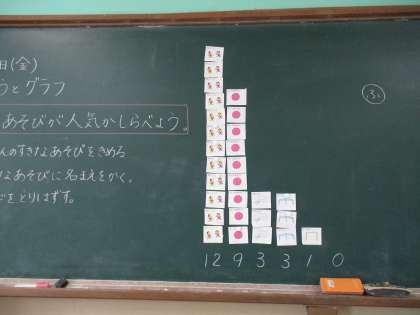 日(金)
うとグラフ
あそびが人気かしらべよう。
んのすきなあそびをきめる
なあそびに名まえをかく。
をとりはずす。
12 9 3 3 1 0